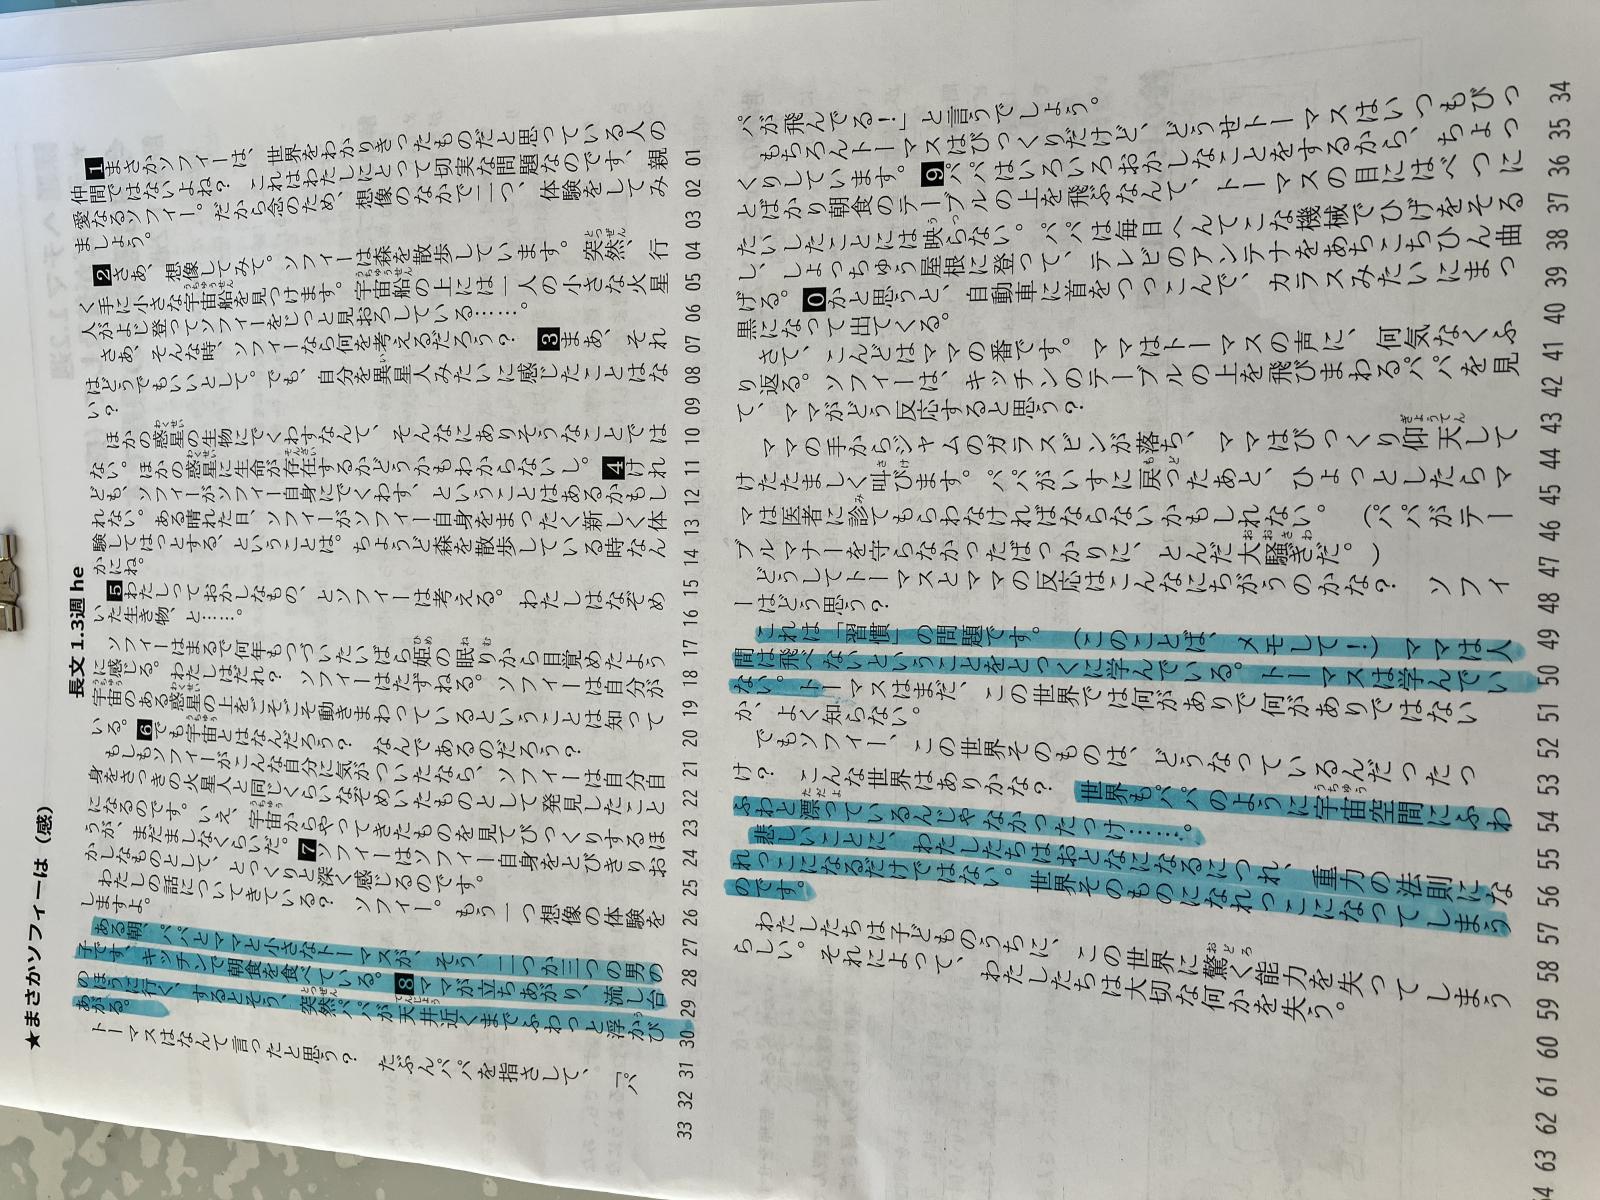 ★まさかソフィーは（感）
長文 1.3週 he
1まさかソフィーは、世界をわかりきったものだと思っている人の
仲間ではないよね？　これはわたしにとって切実な問題なのです、親
愛なるソフィー。だから念のため、想像のなかで二つ、体験をしてみ
ましょう。
2さあ、想像してみて。ソフィーは森を散歩しています。突然、行
く手に小さな宇宙船を見つけます。宇宙船の上には一人の小さな火星
人がよじ登ってソフィーをじっと見おろしている……。
さあ、そんな時、ソフィーなら何を考えるだろう？　3まあ、それ
はどうでもいいとして。でも、自分を異星人みたいに感じたことはな
い？
ほかの惑星の生物にでくわすなんて、そんなにありそうなことでは
ない。ほかの惑星に生命が存在するかどうかもわからないし。4けれ
ども、ソフィーがソフィー自身にでくわす、ということはあるかもし
れない。ある晴れた日、ソフィーがソフィー自身をまったく新しく体
験してはっとする、ということは。ちょうど森を散歩している時なん
かにね。
5わたしっておかしなもの、とソフィーは考える。わたしはなぞめ
いた生き物、と……。
ソフィーはまるで何年もつづいたいばら姫の眠りから目覚めたよう
に感じる。わたしはだれ？　ソフィーはたずねる。ソフィーは自分が
宇宙のある惑星の上をごそごそ動きまわっているということは知って
いる。6でも宇宙とはなんだろう？　なんであるのだろう？
もしもソフィーがこんな自分に気がついたなら、ソフィーは自分自
身をさっきの火星人と同じくらいなぞめいたものとして発見したこと
になるのです。いえ、宇宙からやってきたものを見てびっくりするほ
うが、まだましなくらいだ。7ソフィーはソフィー自身をとびきりお
かしなものとして、とっくりと深く感じるのです。
わたしの話についてきている？　ソフィー。もう一つ想像の体験を
しますよ。
ある朝、パパとママと小さなトーマスが、そう、二つか三つの男の
子です、キッチンで朝食を食べている。8ママが立ちあがり、流し台
のほうに行く、するとそう、突然パパが天井近くまでふわっと浮かび
あがる。
トーマスはなんて言ったと思う？　たぶんパパを指さして、「パ
パが飛んでる！」と言うでしょう。
もちろんトーマスはびっくりだけど、どうせトーマスはいつもびっ
くりしています。9パパはいろいろおかしなことをするから、ちょっ
とばかり朝食のテーブルの上を飛ぶなんて、トーマスの目にはべつに
たいしたことには映らない。パパは毎日へんてこな機械でひげをそる
し、しょっちゅう屋根に登って、テレビのアンテナをあちこちひん曲
げる。0かと思うと、自動車に首をつっこんで、カラスみたいにまっ
黒になって出てくる。
さて、こんどはママの番です。ママはトーマスの声に、何気なくふ
り返る。ソフィーは、キッチンのテーブルの上を飛びまわるパパを見
て、ママがどう反応すると思う？
ママの手からジャムのガラスビンが落ち、ママはびっくり仰天して
けたたましく叫びます。パパがいすに戻ったあと、ひょっとしたらマ
マは医者に診てもらわなければならないかもしれない。（パパがテー
ブルマナーを守らなかったばっかりに、とんだ大騒ぎだ。）
どうしてトーマスとママの反応はこんなにちがうのかな？　ソフィ
ーはどう思う？
これは「習慣」の問題です。（このことば、メモして！）ママは人
間は飛べないということをとっくに学んでいる。トーマスは学んでい
ない。トーマスはまだ、この世界では何がありで何がありではない
か、よく知らない。
でもソフィー、この世界そのものは、どうなっているんだったっ
け？　こんな世界はありかな？　世界もパパのように宇宙空間にふわ
ふわと漂っているんじゃなかったっけ……。
悲しいことに、わたしたちはおとなになるにつれ、重力の法則にな
れっこになるだけではない。世界そのものになれっこになってしまう
のです。
わたしたちは子どものうちに、この世界に驚く能力を失ってしまう
らしい。それによって、わたしたちは大切な何かを失う。